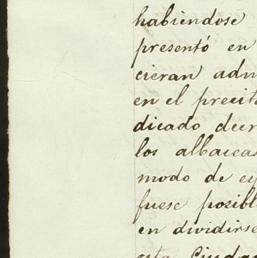 habiéndose
presentó en
cieran adm
en el precit
dicado decr
los albacea
modo de ey
fuese posibl
en dividirse
esta Ciudad